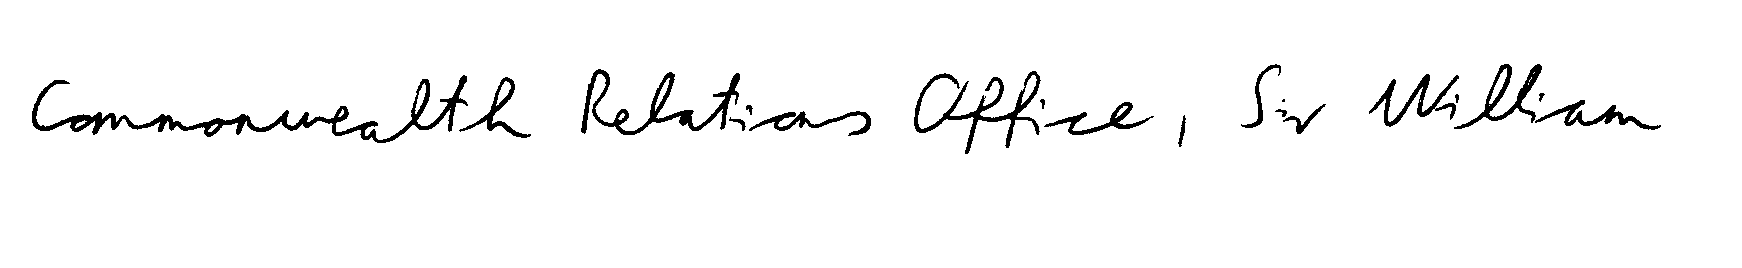 Commonwealth Relations Office, Sir William